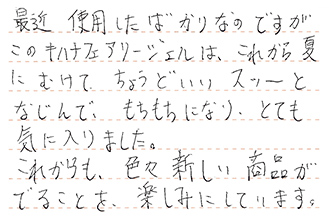 最近 使用したばかりなのですが
このキハナフェアリージェルは、これから夏
にむけて ちょうどいい スッーと
なじんで、もちもちになり、とても
気に入りました。
これからも、色々新しい商品が
でることを、楽しみにしています。